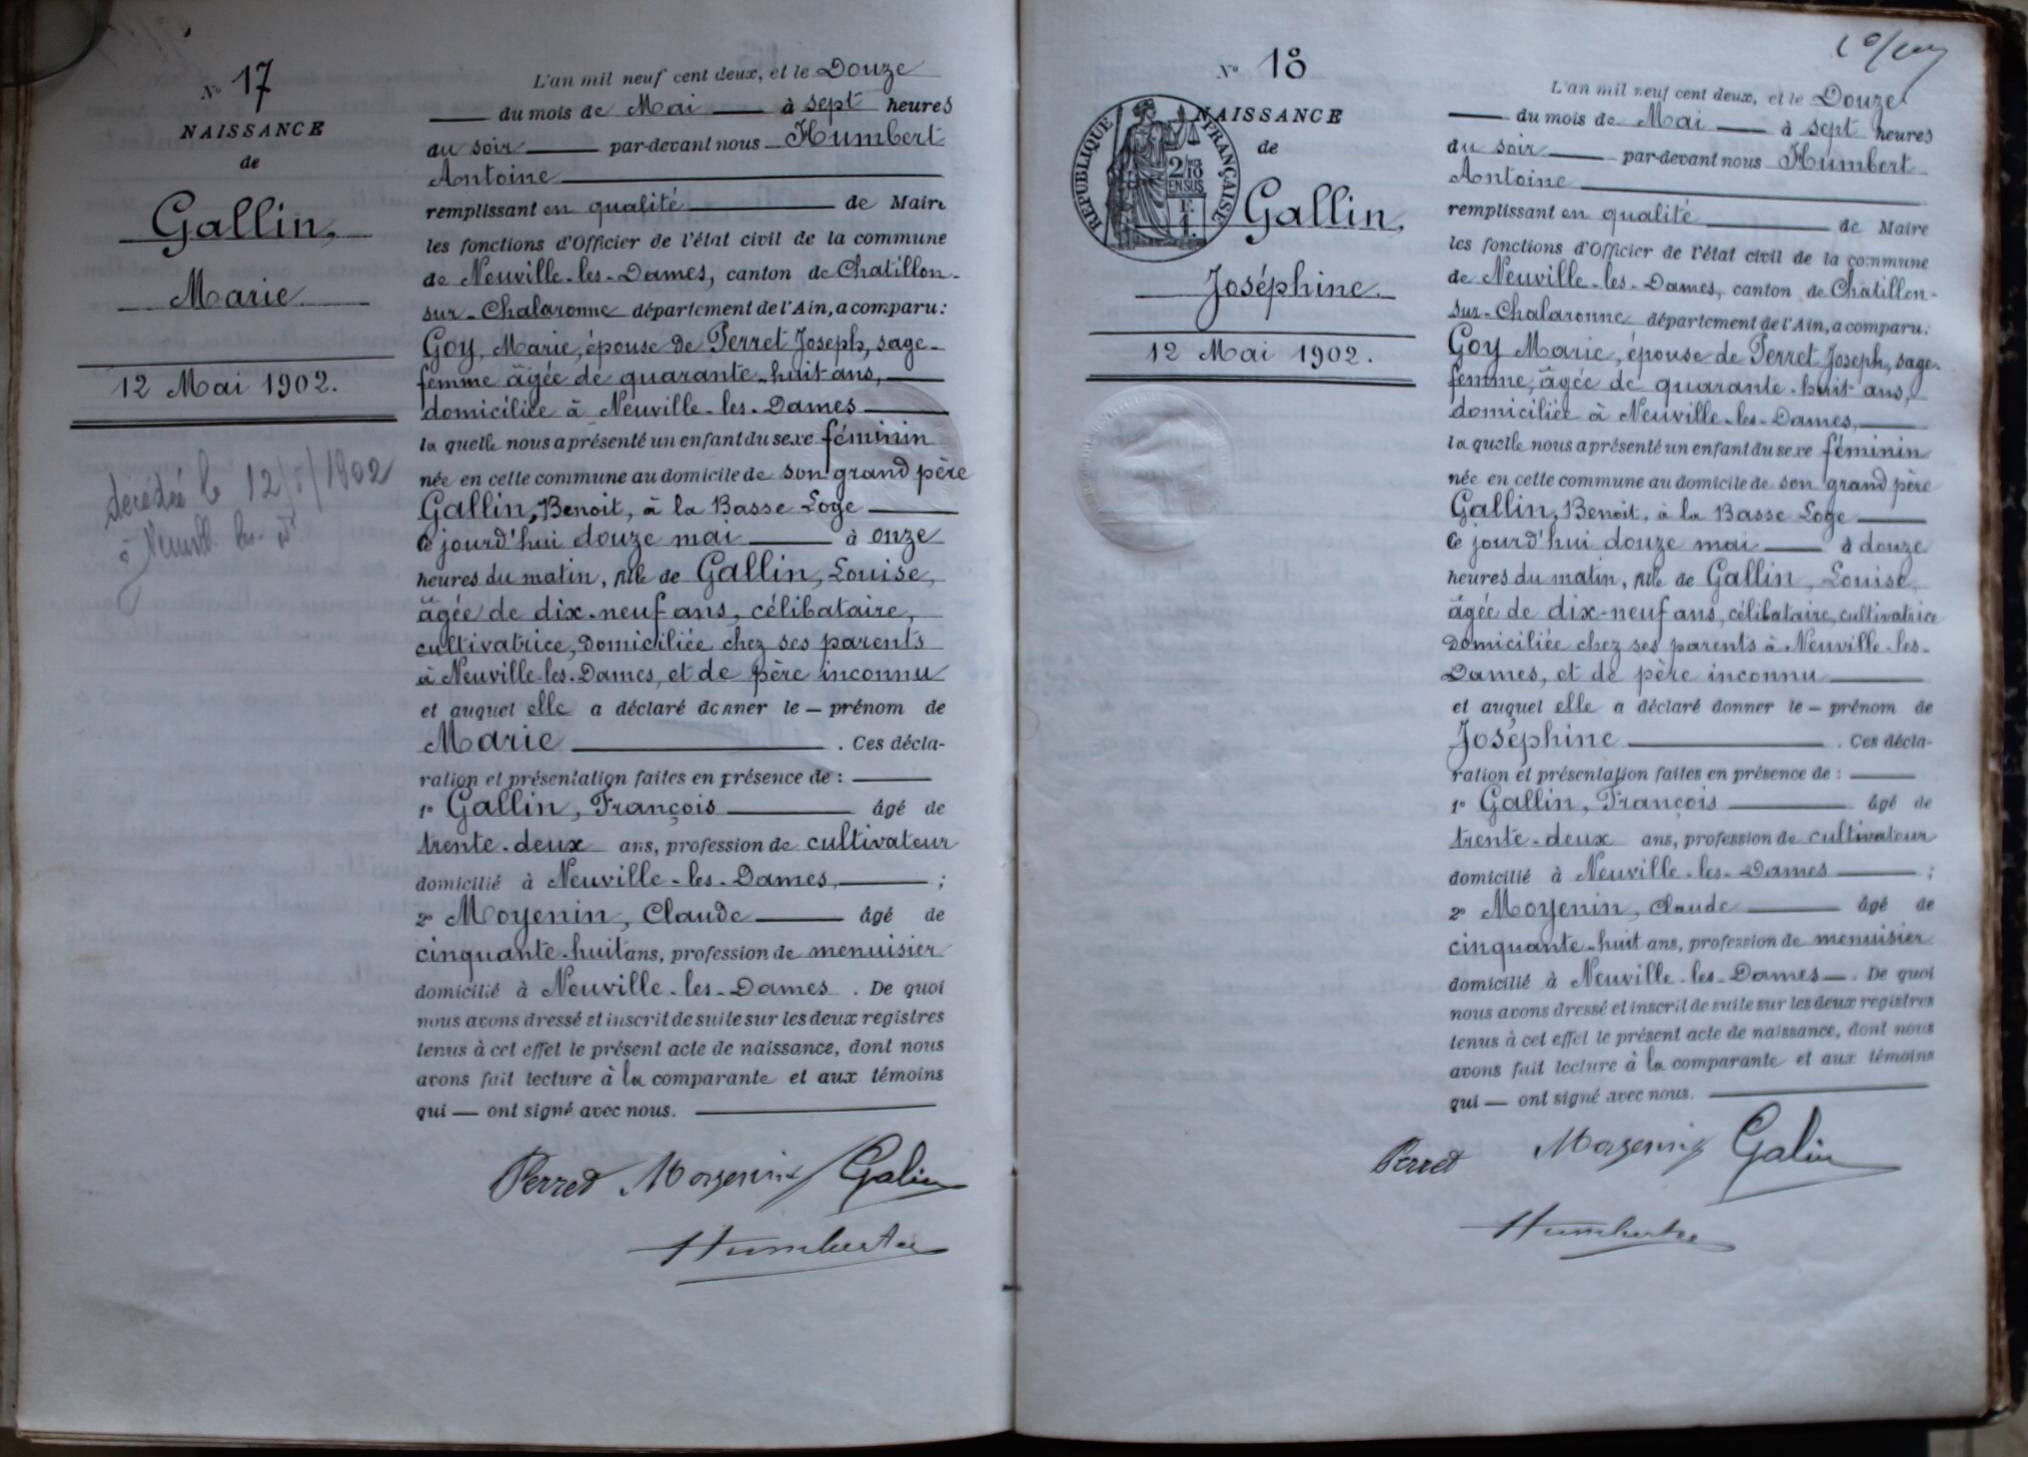 N° 17
NAISSANCE
de
Gallin,
Marie
12 Mai 1902.
décédée le 12/5/1902
à Neuville-les-D
L'an mil neuf cent deux, et le Douze
du mois de Mai à sept heures
du soir par-devant nous Humbert
Antoine
remplissant en qualité de Maire
les fonctions d'Officier de l'état civil de la commune
de Neuville-les-Dames, canton de Chatillon-
sur-Chalaronne département de l'Ain, a comparu:
Goy, Marie, épouse de Perret Joseph, sage-
femme âgée de quarante-huit ans,
domiciliée à Neuville-les-Dames
la quelle nous a présenté un enfant du sexe féminin
née en cette commune au domicile de son grand père
Gallin, Benoit, à la Basse Loge
Ce jourd'hui douze mai à onze
heures du matin, fille de Gallin, Louise,
âgée de dix-neuf ans, célibataire,
cultivatrice, domiciliée chez ses parents
à Neuville-les-Dames, et de père inconnu
et auquel elle a déclaré donner le – prénom de
Marie . Ces décla-
ration et présentation faites en présence de :
1° Gallin, François âgé de
trente-deux ans, profession de cultivateur
domicilié à Neuville-les-Dames, ;
2° Moyenin, Claude âgé de
cinquante-huit ans, profession de menuisier
domicilié à Neuville-les-Dames . De quoi
nous avons dressé et inscrit de suite sur les deux registres
tenus à cet effet le présent acte de naissance, dont nous
avons fait lecture à la comparante et aux témoins
qui — ont signé avec nous.
Perret Moyenin Galin
Humbert
N° 18
RÉPUBLIQUE FRANÇAISE
2/10
EN SUS
NAISSANCE
de
Gallin,
Joséphine.
12 Mai 1902.
L'an mil neuf cent deux, et le Douze
du mois de Mai à sept heures
du soir par-devant nous Humbert
Antoine
remplissant en qualité de Maire
les fonctions d'Officier de l'état civil de la commune
de Neuville-les-Dames, canton de Chatillon-
sur-Chalaronne département de l'Ain, a comparu:
Goy Marie, épouse de Perret Joseph, sage-
femme, âgée de quarante-huit ans,
domiciliée à Neuville-les-Dames,
la quelle nous a présenté un enfant du sexe féminin
née en cette commune au domicile de son grand père
Gallin, Benoit, à la Basse Loge
Ce jourd'hui douze mai à douze
heures du matin, fille de Gallin, Louise
âgée de dix-neuf ans, célibataire, cultivatrice
domiciliée chez ses parents à Neuville-les-
Dames, et de père inconnu
et auquel elle a déclaré donner le – prénom de
Joséphine . Ces décla-
ration et présentation faites en présence de :
1° Gallin, François âgé de
trente-deux ans, profession de cultivateur
domicilié à Neuville-les-Dames ;
2° Moyenin, Claude âgé de
cinquante-huit ans, profession de menuisier
domicilié à Neuville-les-Dames —. De quoi
nous avons dressé et inscrit de suite sur les deux registres
tenus à cet effet le présent acte de naissance, dont nous
avons fait lecture à la comparante et aux témoins
qui — ont signé avec nous.
Perret Moyenin Galin
Humbert